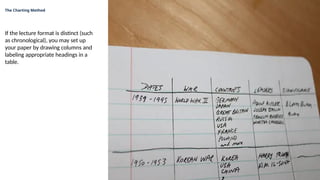 The Charting Method
If the lecture format is distinct (such
as chronological), you may set up
your paper by drawing columns and
labeling appropriate headings in a
table.
DATES WAR COUNTRIES LEADERS SIGNIFICANCE
1939-1945 WORLD WAR II GERMANY ADOLF HITLER
JAPAN JOSEPH STALIN
GREAT BRITAIN
RUSSIA
USA
FRANCE
POLAND
and more
1950-1953 KOREAN WAR KOREA HARRY
USA KIM IL-SUNG
CHINA